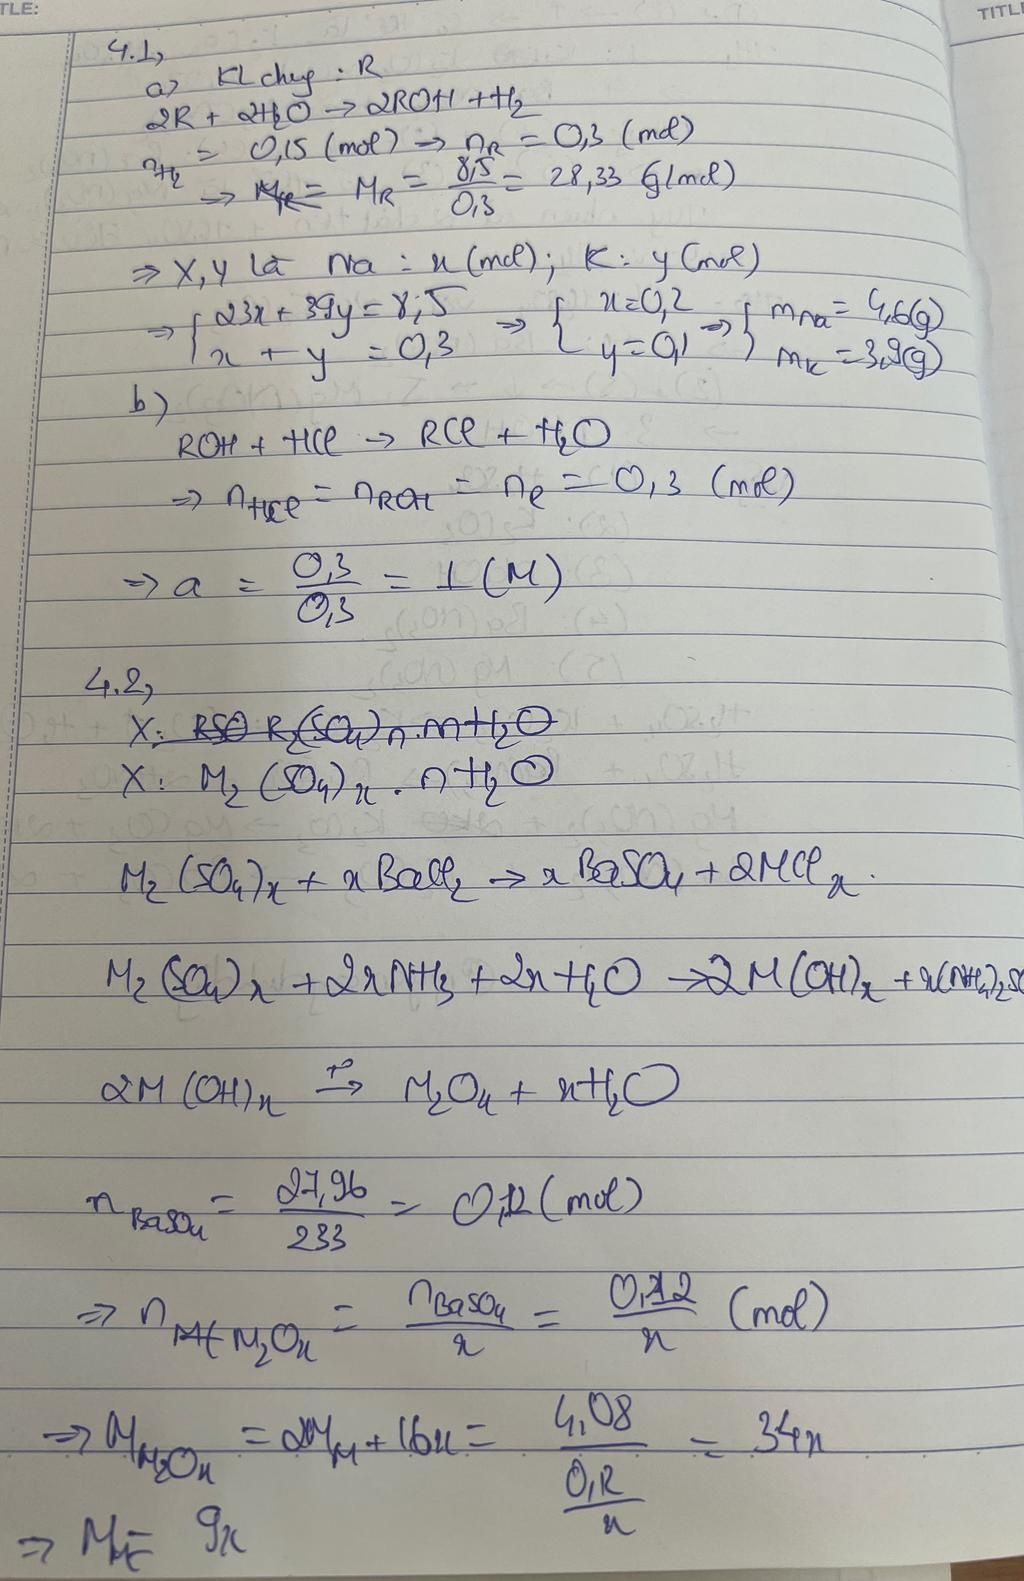 TLE:
TITLE
4.1,
a) KL chug : R
2R + 2H2O → 2ROH + H2
nH2 = 0,15 (mol) → nR = 0,3 (mol)
⇒ MR = 8,5/0,3 = 28,33 (g/mol)
⇒ X, Y là Na : x (mol); K: y (mol)
⇒ { 23x + 39y = 8,5 ⇒ { x = 0,2 ⇒ { mNa = 4,6(g)
x + y = 0,3 y = 0,1 mK = 3,9(g)
b)
ROH + HCl → RCl + H2O
⇒ nHCl = nROH = nR = 0,3 (mol)
⇒ a = 0,3/0,3 = 1 (M)
4.2,
X: RSO R2(SO4)n.mH2O
X: M2(SO4)x . nH2O
M2(SO4)x + xBaCl2 → xBaSO4 + 2MClx.
M2(SO4)x + 2xNH3 + 2xH2O → 2M(OH)x + x(NH4)2SO
2M(OH)x t°→ M2Ox + xH2O
nBaSO4 = 27,96/233 = 0,12 (mol)
⇒ nM2Ox = nBaSO4/x = 0,12/x (mol)
⇒ MM2Ox = 2MM + 16x = 4,08/(0,12/x) = 34x
⇒ MM = 9x